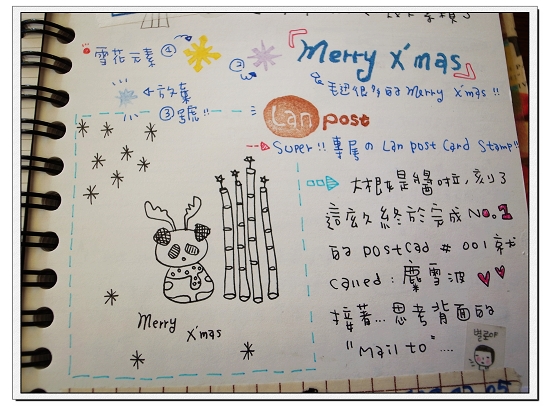 雪花元素 ①
②
放棄
③ 號!!
『Merry X'mas』
毛迅很多的 Merry X'mas!!
Lan post
Super!! 專屬の Lan post Card Stamp!!
大概是腦啦, 刻了
這麼久終於完成 No.1
的 postcad # 001 就
called: 麋雪波
接著... 思考背面的
"mail to" ....
Merry
X'mas
별로야